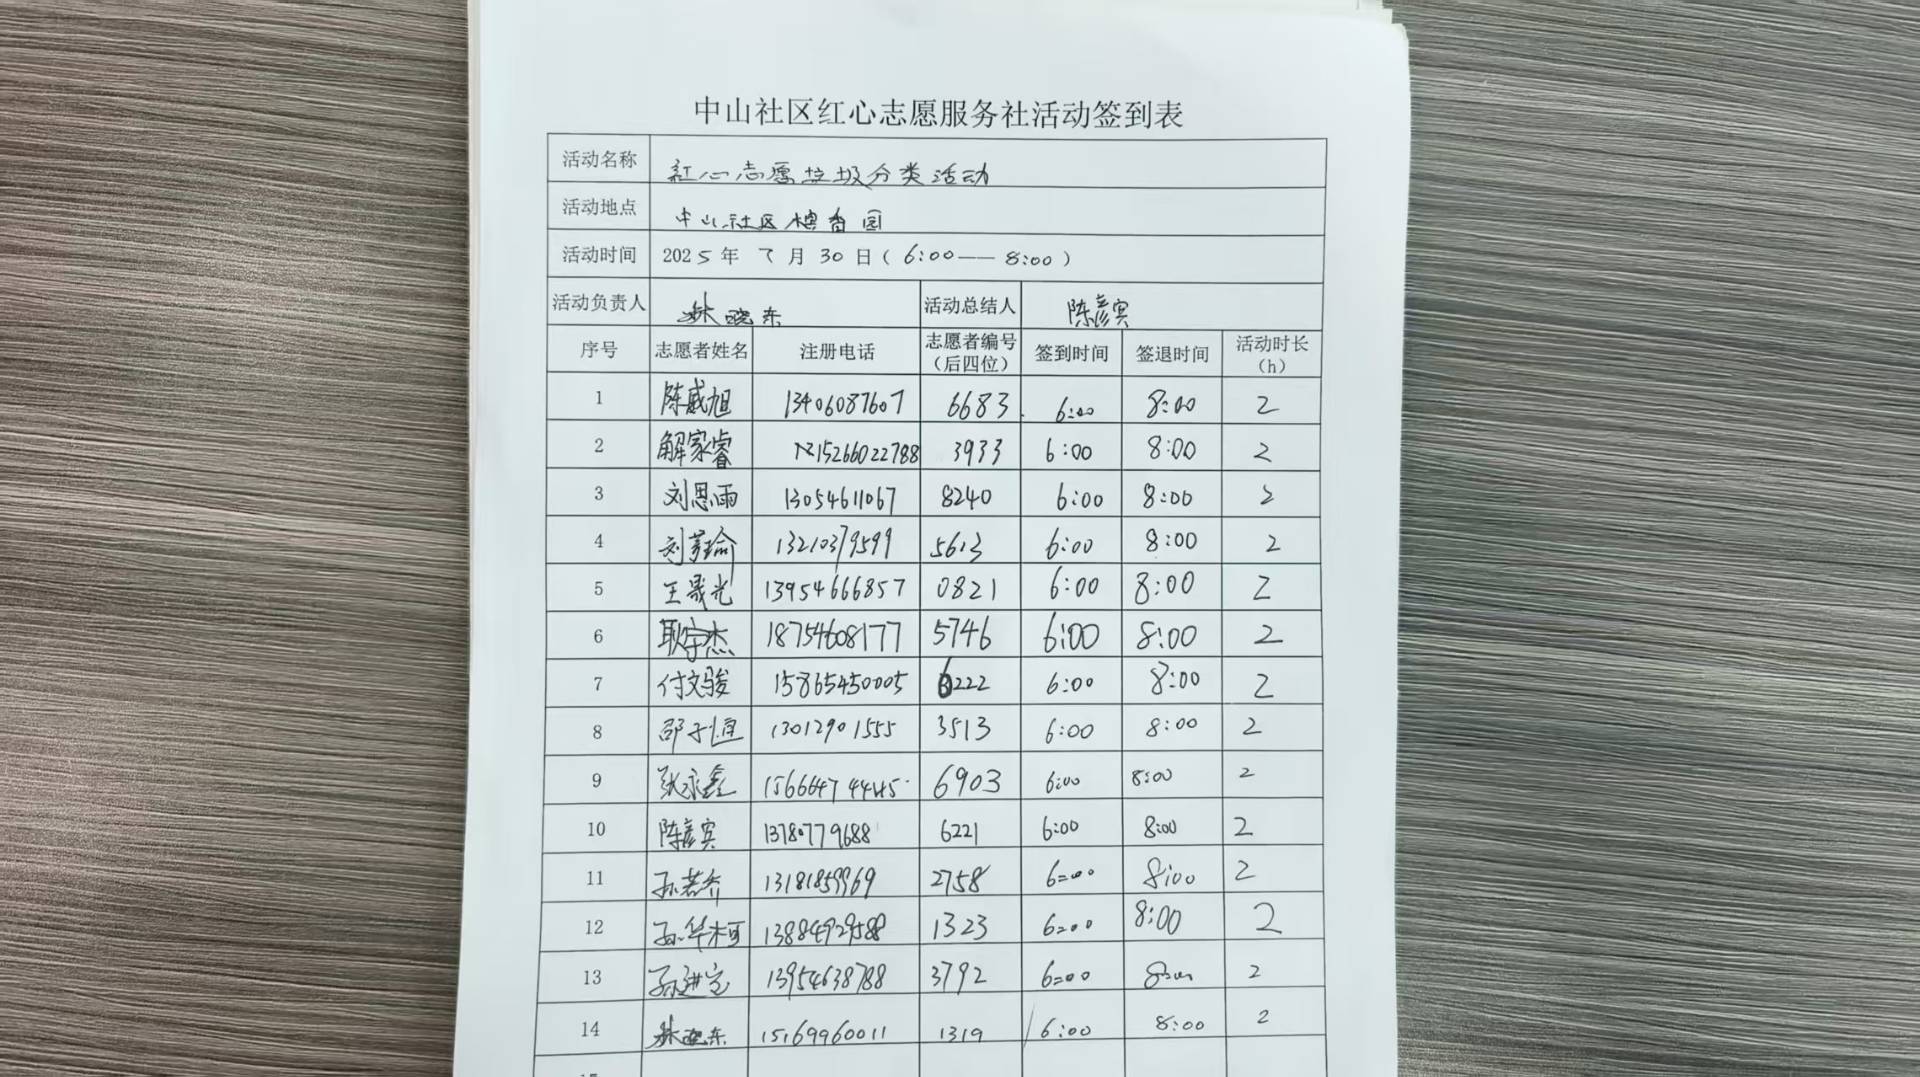 中山社区红心志愿服务社活动签到表
活动名称 红心志愿垃圾分类活动
活动地点 中山社区檀香园
活动时间 2025年7月30日(6:00——8:00)
活动负责人 林晓东 活动总结人 陈彦宾
序号 志愿者姓名 注册电话 志愿者编号(后四位) 签到时间 签退时间 活动时长(h)
1 陈威旭 13406087607 6683 6:00 8:00 2
2 解家睿 15266022788 3933 6:00 8:00 2
3 刘思雨 13054611067 8240 6:00 8:00 2
4 刘 瑜 13210379599 5613 6:00 8:00 2
5 王晟光 13954666857 0821 6:00 8:00 2
6 耿宇杰 18754608177 5746 6:00 8:00 2
7 付文骏 15865450005 6222 6:00 8:00 2
8 邵子恒 13012901555 3513 6:00 8:00 2
9 张永鑫 6903 6:00 8:00 2
10 陈彦宾 13780779688 6221 6:00 8:00 2
11 孙若乔 13181859969 2758 6:00 8:00 2
12 孙华柯 13884929588 1323 6:00 8:00 2
13 孙进宝 13954638788 3792 6:00 8:00 2
14 林晓东 15169960011 1319 6:00 8:00 2